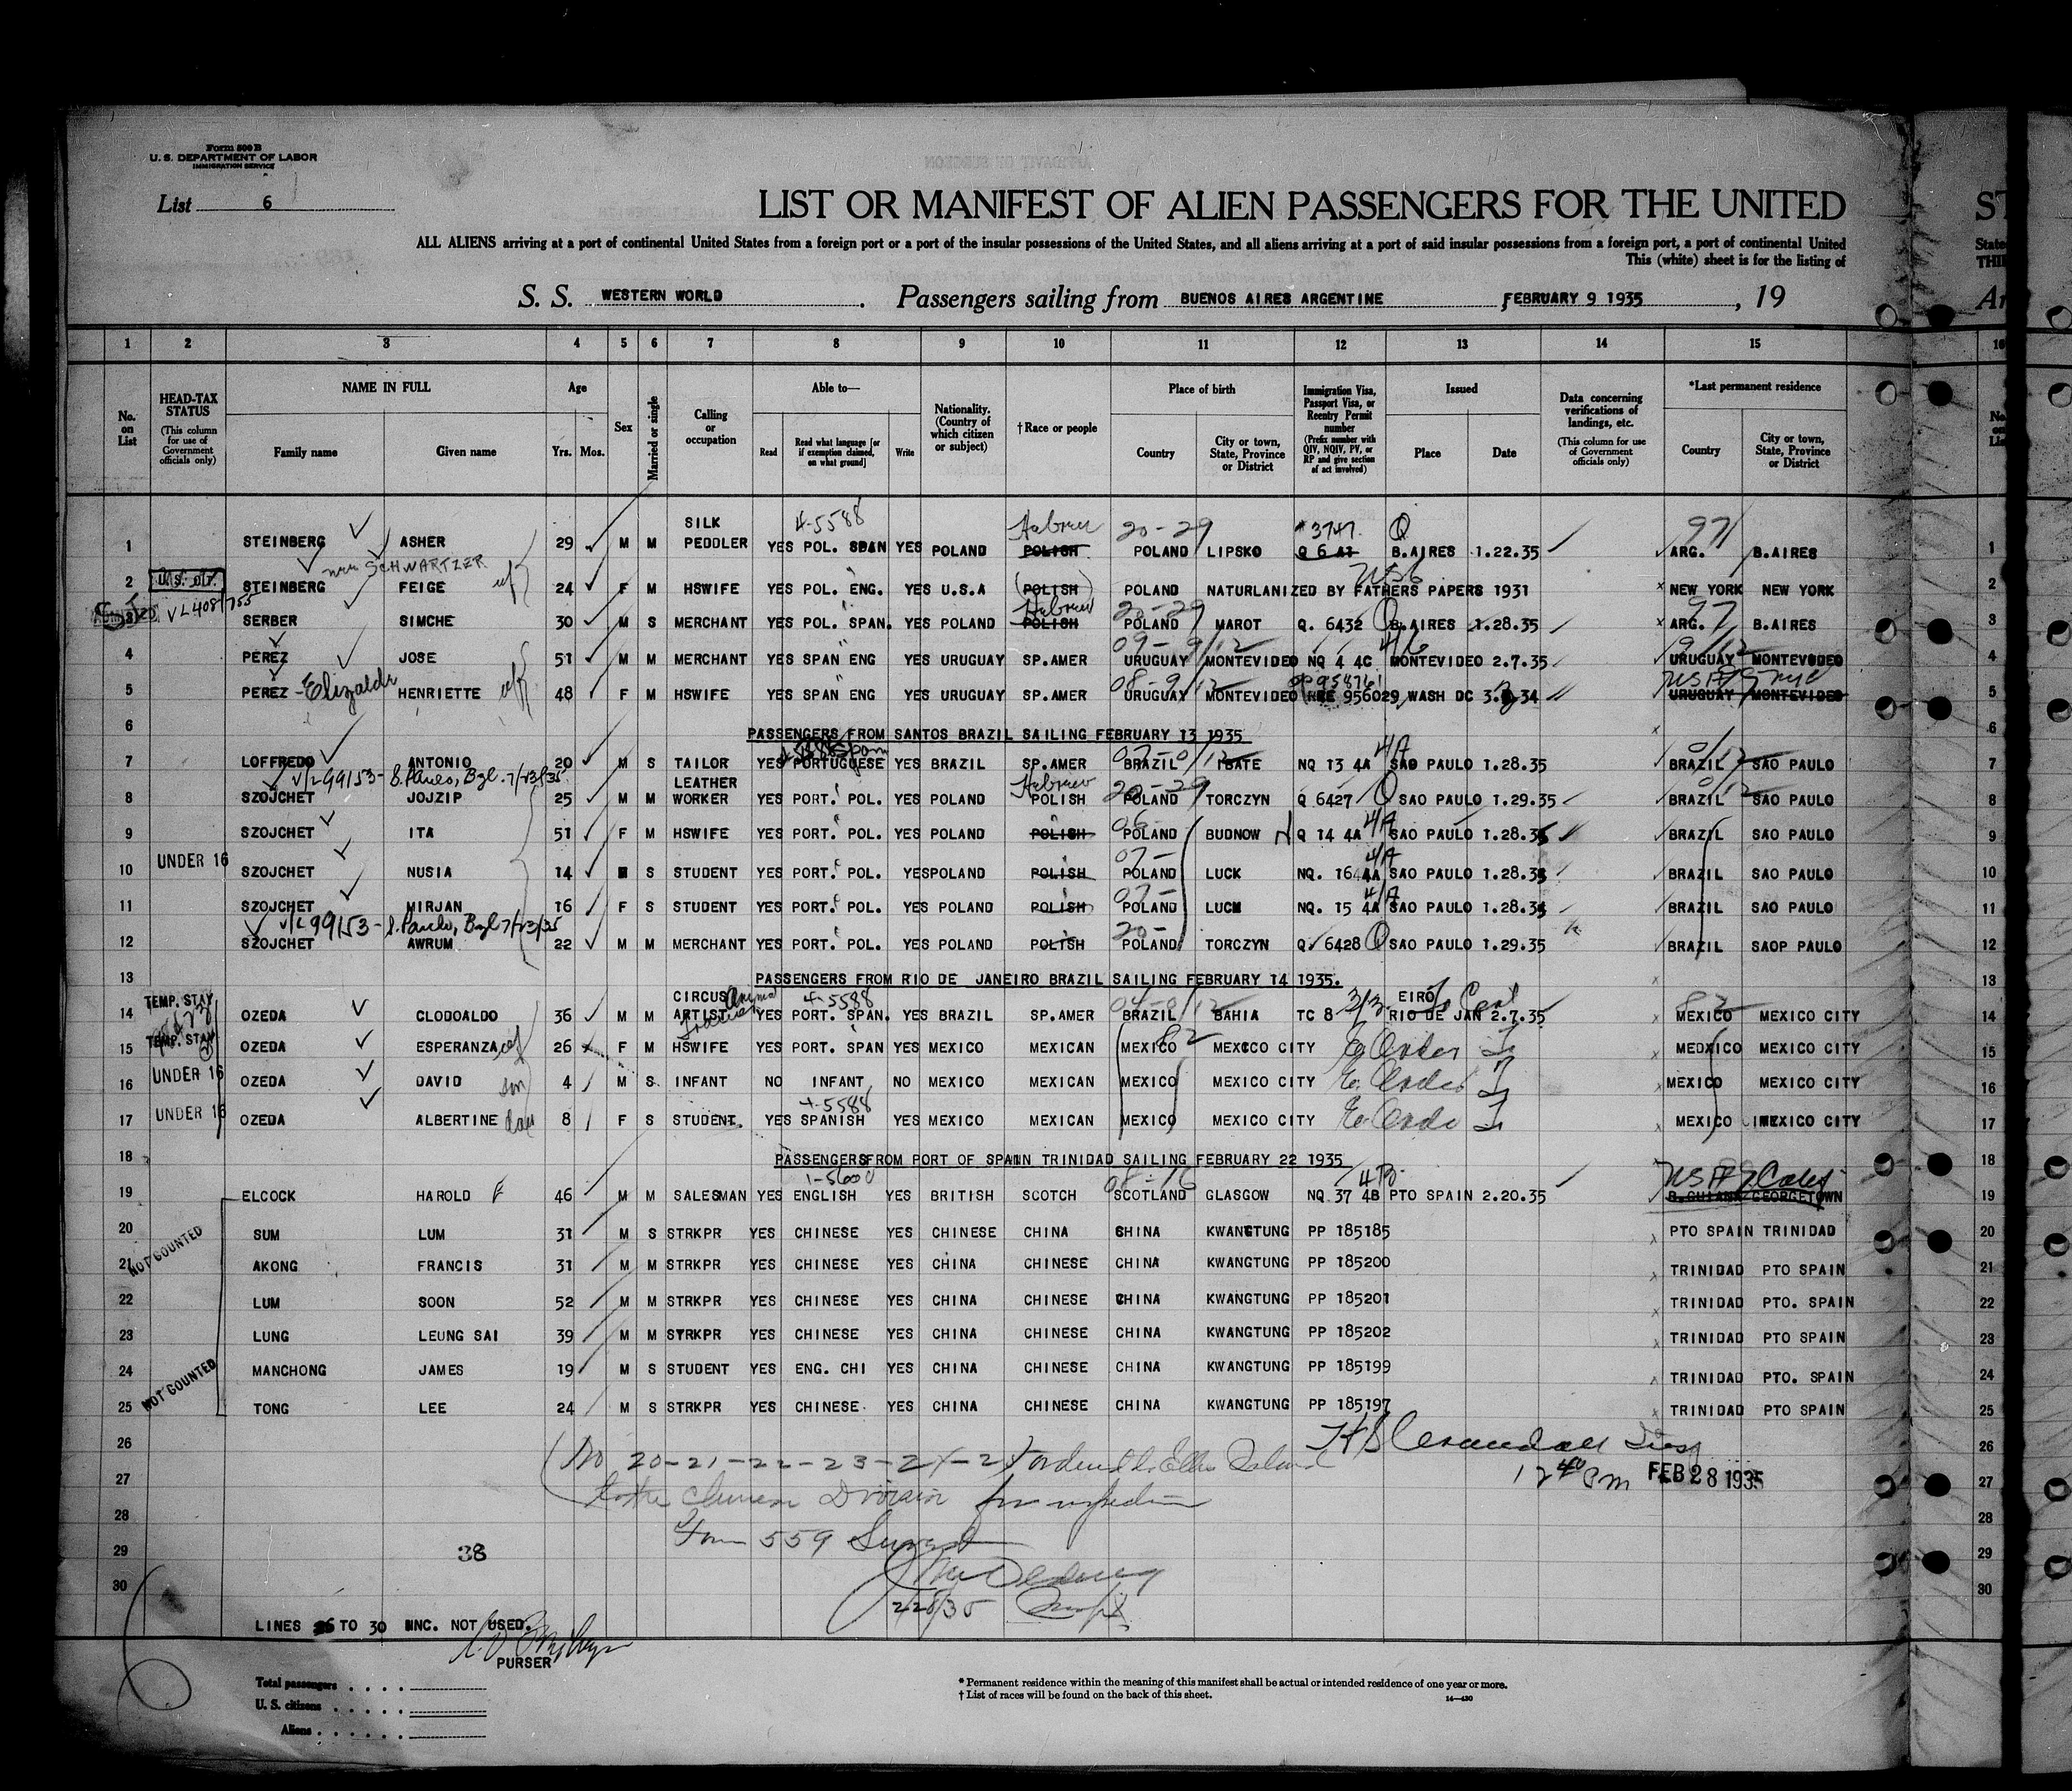 Form 500 B
U. S. DEPARTMENT OF LABOR
IMMIGRATION SERVICE
List 6
LIST OR MANIFEST OF ALIEN PASSENGERS FOR THE UNITED
ALL ALIENS arriving at a port of continental United States from a foreign port or a port of the insular possessions of the United States, and all aliens arriving at a port of said insular possessions from a foreign port, a port of continental United
This (white) sheet is for the listing of
S. S. WESTERN WORLD. Passengers sailing from BUENOS AIRES ARGENTINE FEBRUARY 9 1935, 19
1 2 3 4 5 6 7 8 9 10 11 12 13 14 15
No. on List
HEAD-TAX STATUS (This column for use of Government officials only)
NAME IN FULL Family name Given name
Age Yrs. Mos.
Sex
Married or single
Calling or occupation
Able to— Read Read what language [or if exemption claimed, on what ground] Write
Nationality. (Country of which citizen or subject)
†Race or people
Place of birth Country City or town, State, Province or District
Immigration Visa, Passport Visa, or Reentry Permit number (Prefix number with QIV, NQIV, PV, or RP and give section of act involved)
Issued Place Date
Data concerning verifications of landings, etc. (This column for use of Government officials only)
*Last permanent residence Country City or town, State, Province or District
4-5588 Hebrew 20-29 *3747 Q 97
1 STEINBERG ASHER 29 M M SILK PEDDLER YES POL. SPAN YES POLAND POLISH POLAND LIPSKO Q 6 B.AIRES 1.22.35 ARG. B.AIRES 1
SCHWARTZER
2 STEINBERG FEIGE 24 F M HSWIFE YES POL. ENG. YES U.S.A (POLISH) POLAND NATURLANIZED BY FATHERS PAPERS 1931 NEW YORK NEW YORK 2
Hebrew 20-29 97
3 SERBER SIMCHE 30 M S MERCHANT YES POL. SPAN. YES POLAND POLISH POLAND MAROT Q. 6432 B.AIRES 1.28.35 ARG. B.AIRES 3
4 PEREZ JOSE 51 M M MERCHANT YES SPAN ENG YES URUGUAY SP.AMER URUGUAY MONTEVIDEO NQ 4 4C MONTEVIDEO 2.7.35 URUGUAY MONTEVODEO 4
5 PEREZ - Elizalde HENRIETTE 48 F M HSWIFE YES SPAN ENG YES URUGUAY SP.AMER URUGUAY MONTEVIDEO 956029 WASH DC 34 URUGUAY MONTEVIDEO 5
6 PASSENGERS FROM SANTOS BRAZIL SAILING FEBRUARY 13 1935 6
7 LOFFREDO ANTONIO 20 M S TAILOR YES PORTUGUESE YES BRAZIL SP.AMER BRAZIL IBATE NQ 13 4A SAO PAULO 1.28.35 BRAZIL SAO PAULO 7
8 SZOJCHET JOJZIP 25 M M LEATHER WORKER YES PORT. POL. YES POLAND Hebrew POLISH POLAND TORCZYN Q 6427 SAO PAULO 1.29.35 BRAZIL SAO PAULO 8
9 SZOJCHET ITA 51 F M HSWIFE YES PORT. POL. YES POLAND POLISH POLAND BUDNOW Q 14 4A SAO PAULO 1.28.35 BRAZIL SAO PAULO 9
10 UNDER 16 SZOJCHET NUSIA 14 S STUDENT YES PORT. POL. YESPOLAND POLISH POLAND LUCK NQ. 16 4A SAO PAULO 1.28.35 BRAZIL SAO PAULO 10
11 SZOJCHET MIRJAN 16 F S STUDENT YES PORT. POL. YES POLAND POLISH POLAND LUCM NQ. 15 4A SAO PAULO 1.28.35 BRAZIL SAO PAULO 11
12 SZOJCHET AWRUM 22 M M MERCHANT YES PORT. POL. YES POLAND POLISH POLAND TORCZYN Q. 6428 SAO PAULO 1.29.35 BRAZIL SAOP PAULO 12
13 PASSENGERS FROM RIO DE JANEIRO BRAZIL SAILING FEBRUARY 14 1935. 13
14 TEMP. STAY OZEDA CLODOALDO 36 M M CIRCUS ARTIST YES PORT. SPAN. YES BRAZIL SP.AMER BRAZIL BAHIA TC 8 RIO DE JAN EIRO 2.7.35 MEXICO MEXICO CITY 14
15 TEMP. STAY OZEDA ESPERANZA 26 F M HSWIFE YES PORT. SPAN YES MEXICO MEXICAN MEXICO MEXCCO CITY MEDXICO MEXICO CITY 15
16 UNDER 16 OZEDA DAVID son 4 M S INFANT NO INFANT NO MEXICO MEXICAN MEXICO MEXICO CITY MEXICO MEXICO CITY 16
4-5588
17 UNDER 16 OZEDA ALBERTINE dau 8 F S STUDENT. YES SPANISH YES MEXICO MEXICAN MEXICO MEXICO CITY MEXICO MEXICO CITY 17
18 PASSENGERSFROM PORT OF SPAIN TRINIDAD SAILING FEBRUARY 22 1935 18
19 ELCOCK HAROLD F 46 M M SALESMAN YES ENGLISH YES BRITISH SCOTCH SCOTLAND GLASGOW NQ 37 4B PTO SPAIN 2.20.35 B.GUIANA GEORGETOWN 19
20 SUM LUM 31 M S STRKPR YES CHINESE YES CHINESE CHINA CHINA KWANGTUNG PP 185185 PTO SPAIN TRINIDAD 20
NOT COUNTED
21 AKONG FRANCIS 31 M M STRKPR YES CHINESE YES CHINA CHINESE CHINA KWANGTUNG PP 185200 TRINIDAD PTO SPAIN 21
22 LUM SOON 52 M M STRKPR YES CHINESE YES CHINA CHINESE CHINA KWANGTUNG PP 185201 TRINIDAD PTO. SPAIN 22
23 LUNG LEUNG SAI 39 M M STRKPR YES CHINESE YES CHINA CHINESE CHINA KWANGTUNG PP 185202 TRINIDAD PTO SPAIN 23
24 MANCHONG JAMES 19 M S STUDENT YES ENG. CHI YES CHINA CHINESE CHINA KWANGTUNG PP 185199 TRINIDAD PTO. SPAIN 24
NOT COUNTED
25 TONG LEE 24 M S STRKPR YES CHINESE. YES CHINA CHINESE CHINA KWANGTUNG PP 185197 TRINIDAD PTO SPAIN 25
26 No 20-21-22-23-24-25 Ellis Island 26
27 Chinese Division for inspection 12 40 PM FEB 28 1935 27
28 Form 559 28
29 38 29
30 30
2/28/35
LINES 26 TO 30 INC. NOT USED.
PURSER
Total passengers
U. S. citizens
Aliens
* Permanent residence within the meaning of this manifest shall be actual or intended residence of one year or more.
† List of races will be found on the back of this sheet.
14—430